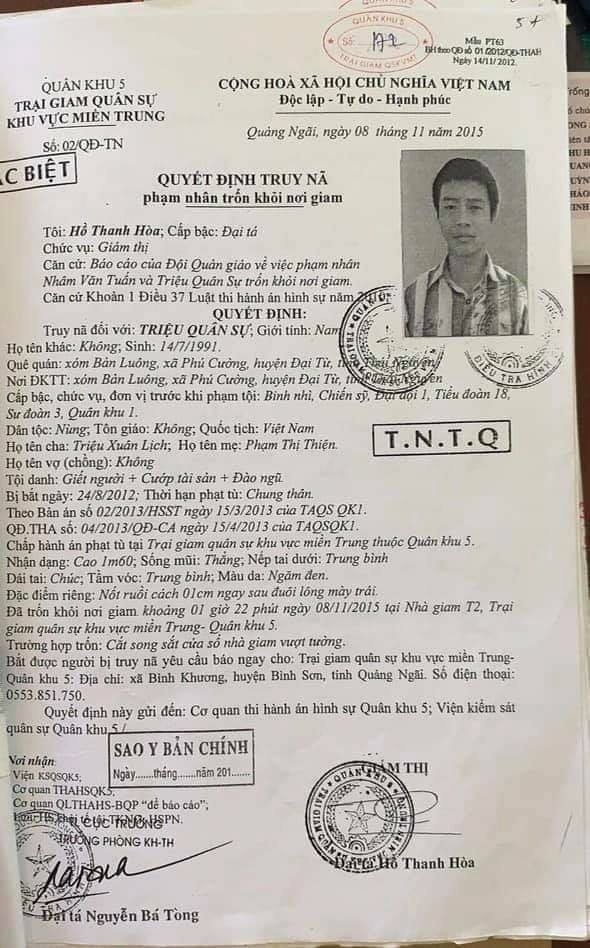 QUÂN KHU 5
Số: 172
TRẠI GIAM QSKVMT
5+
Mẫu PT63
BH theo QĐ số 01/2012/QĐ-THAH
Ngày 14/11/2012.
QUÂN KHU 5
TRẠI GIAM QUÂN SỰ
KHU VỰC MIỀN TRUNG
Số: 02/QĐ-TN
CỘNG HOÀ XÃ HỘI CHỦ NGHĨA VIỆT NAM
Độc lập - Tự do - Hạnh phúc
Quảng Ngãi, ngày 08 tháng 11 năm 2015
ẶC BIỆT
QUYẾT ĐỊNH TRUY NÃ
phạm nhân trốn khỏi nơi giam
Tôi: Hồ Thanh Hòa; Cấp bậc: Đại tá
Chức vụ: Giám thị
Căn cứ: Báo cáo của Đội Quản giáo về việc phạm nhân
Nhâm Văn Tuấn và Triệu Quân Sự trốn khỏi nơi giam.
Căn cứ Khoản 1 Điều 37 Luật thi hành án hình sự năm
QUYẾT ĐỊNH:
Truy nã đối với: TRIỆU QUÂN SỰ; Giới tính: Nam
Họ tên khác: Không; Sinh: 14/7/1991.
Quê quán: xóm Bàn Luông, xã Phú Cường, huyện Đại Từ, tỉnh Thái Nguyên
Nơi ĐKTT: xóm Bàn Luông, xã Phú Cường, huyện Đại Từ, tỉnh Thái Nguyên
Cấp bậc, chức vụ, đơn vị trước khi phạm tội: Binh nhì, Chiến sỹ, Đại đội 1, Tiểu đoàn 18,
Sư đoàn 3, Quân khu 1.
Dân tộc: Nùng; Tôn giáo: Không; Quốc tịch: Việt Nam
Họ tên cha: Triệu Xuân Lịch; Họ tên mẹ: Phạm Thị Thiện.
T.N.T.Q
Họ tên vợ (chồng): Không
Tội danh: Giết người + Cướp tài sản + Đào ngũ.
Bị bắt ngày: 24/8/2012; Thời hạn phạt tù: Chung thân.
Theo Bản án số 02/2013/HSST ngày 15/3/2013 của TAQS QK1.
QĐ.THA số: 04/2013/QĐ-CA ngày 15/4/2013 của TAQSQK1.
Chấp hành án phạt tù tại Trại giam quân sự khu vực miền Trung thuộc Quân khu 5.
Nhận dạng: Cao 1m60; Sống mũi: Thẳng; Nếp tai dưới: Trung bình
Dái tai: Chúc; Tầm vóc: Trung bình; Màu da: Ngăm đen.
Đặc điểm riêng: Nốt ruồi cách 01cm ngay sau đuôi lông mày trái.
Đã trốn khỏi nơi giam khoảng 01 giờ 22 phút ngày 08/11/2015 tại Nhà giam T2, Trại
giam quân sự khu vực miền Trung- Quân khu 5.
Trường hợp trốn: Cắt song sắt cửa sổ nhà giam vượt tường.
Bắt được người bị truy nã yêu cầu báo ngay cho: Trại giam quân sự khu vực miền Trung-
Quân khu 5: Địa chỉ: xã Bình Khương, huyện Bình Sơn, tỉnh Quảng Ngãi. Số điện thoại:
0553.851.750.
Quyết định này gửi đến: Cơ quan thi hành án hình sự Quân khu 5; Viện kiểm sát
quân sự Quân khu 5./.
SAO Y BẢN CHÍNH
Ngày.......tháng.......năm 201.......
Nơi nhận:
Viện KSQSQK5;
Cơ quan THAHSQK5;
Cơ quan QLTHAHS-BQP “để báo cáo”;
GIÁM THỊ
CỤC TRƯỞNG
TRƯỞNG PHÒNG KH-TH
Đại tá Hồ Thanh Hòa
Đại tá Nguyễn Bá Tòng